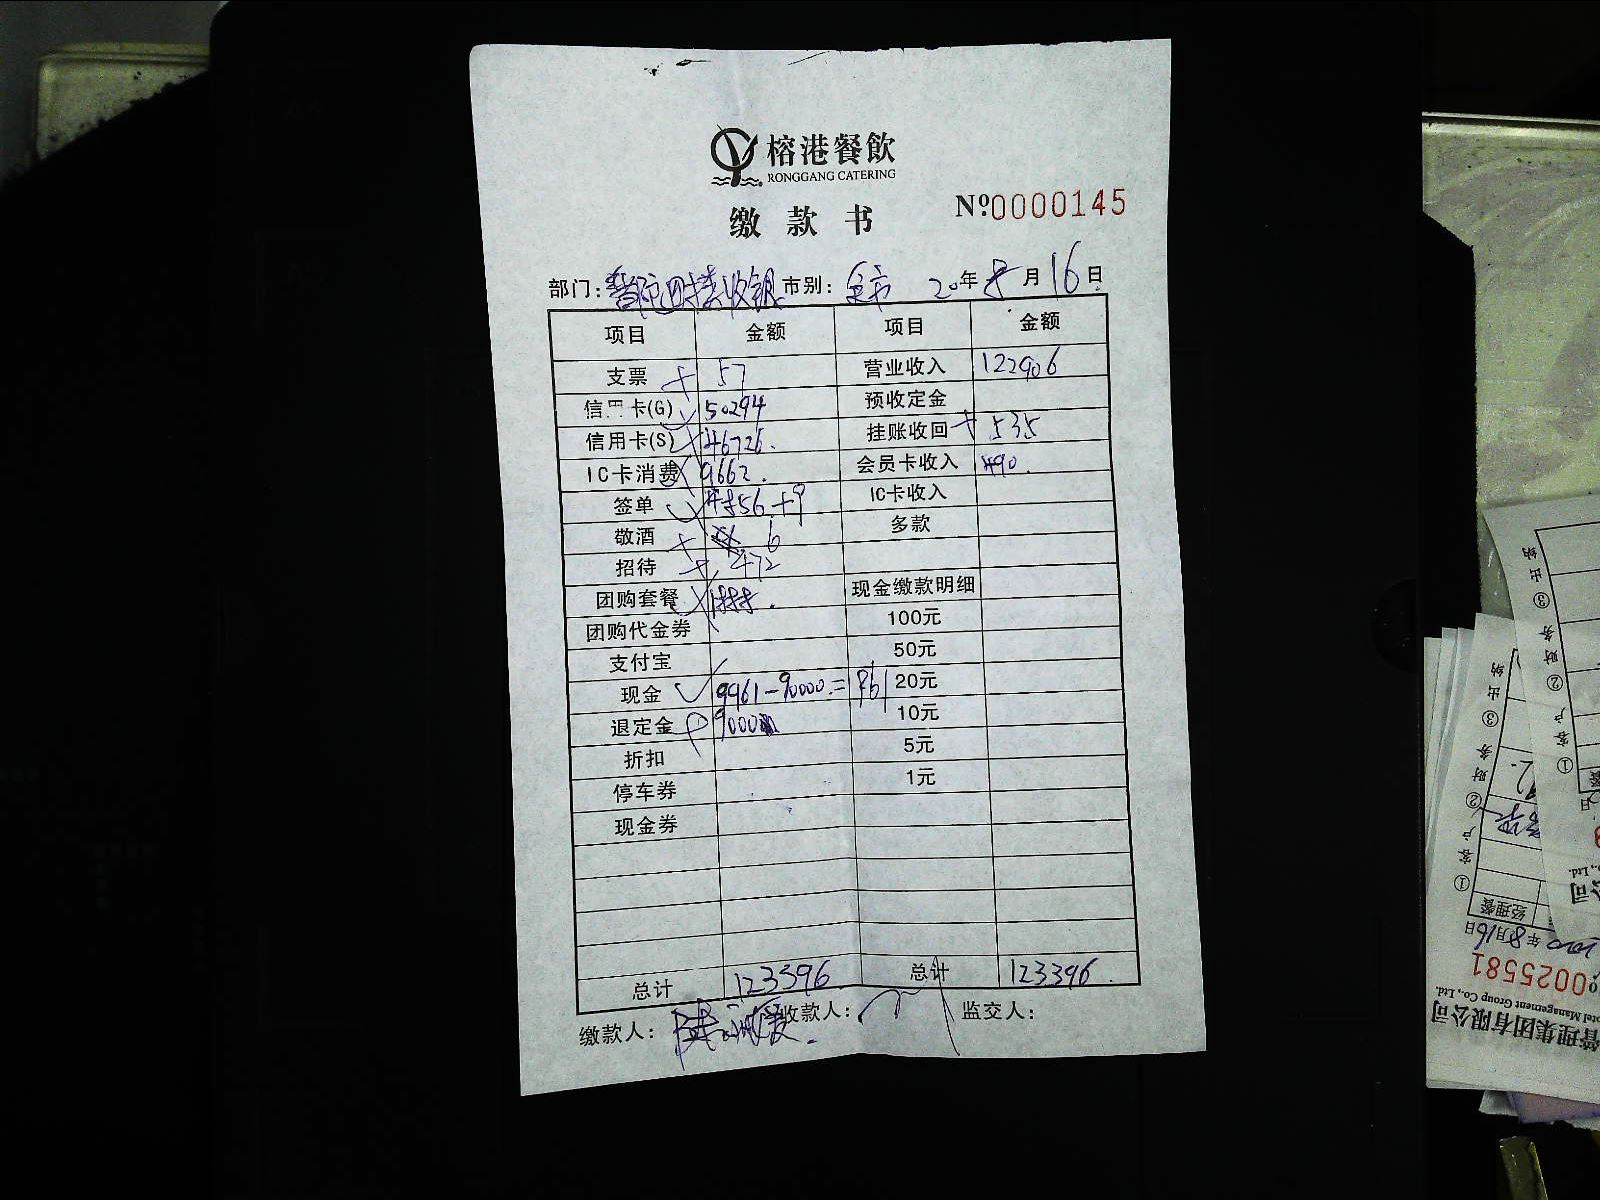 榕港餐飲
RONGGANG CATERING
缴款书
Nº0000145
部门: 收银 市别: 全市 20年8月16日
项目 金额 项目 金额
支票 57 营业收入 122906
信用卡(G) 50294 预收定金
信用卡(S) 46726. 挂账收回 535
IC卡消费 9662. 会员卡收入 490.
签单 +9 IC卡收入
敬酒 6 多款
招待 472
团购套餐 现金缴款明细
团购代金券 100元
支付宝 50元
现金 9961-9000.=961 20元
退定金 9000 10元
折扣 5元
停车券 1元
现金券
总计 123396. 总计 123396.
缴款人: 收款人: 监交人:
①客户②财务③出纳
①客户②财务③出纳
经理餐
年8月16日
0025581
otel Management Group Co., Ltd.
管理集团有限公司
Co., Ltd.
公司